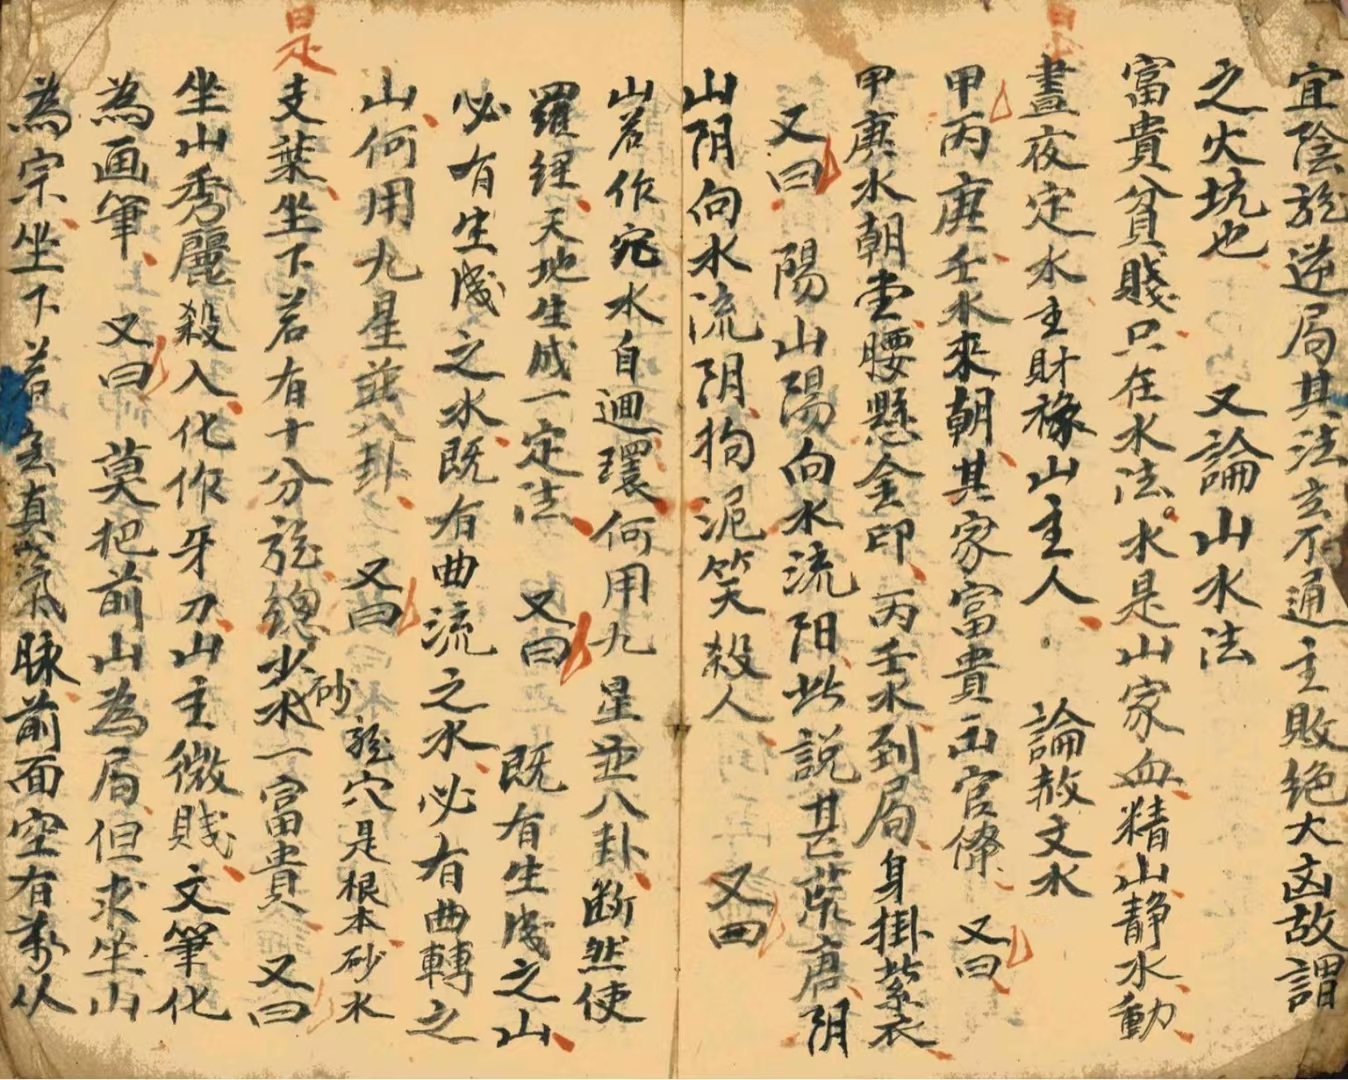 宜陰龍逆局其法玄不通主敗絕大凶故謂
之火坑也 又論山水法
富貴貧賤只在水法。水是山家血精山静水動
晝夜定水主財祿山主人 論赦文水
甲丙庚壬水來朝其家富貴出官僚 又曰
甲庚水朝堂腰懸金印丙壬水到局身掛紫衣
又曰 陽山陽向水流阳此説甚荒唐阴
山阴向水流阴拘泥笑殺人 又曰
山若作窊水自迴環何用九星並八卦断然使
羅經天地生成一定法 又曰 既有生成之山
必有生成之水既有曲流之水必有曲轉之
山何用九星並八卦 又曰 龍穴是根本砂水
是
支葉坐下若有十分龍總少砂水一富貴 又曰
坐山秀麗殺入化作牙刀山主微賤文筆化
為画筆 又曰 莫把前山為局但求坐山
為宗坐下若玄真氣脉前面空有萬从